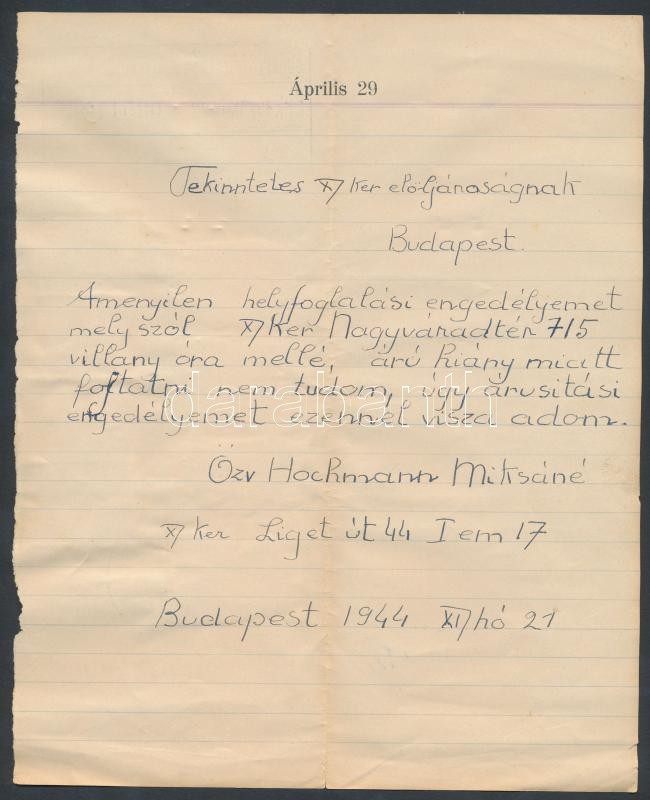 Április 29
Tekinntetes X/ Ker elöljánoságnak
Budapest.
Amenyilen helyfoglalási engedélyemet
mely szól X/Ker Nagyváradtér 7/5
villany óra mellé, árú hiány miatt
foltatni nem tudom, úgy árusitási
engedélyemet ezennel visza adom.
Özv Hochmann Miksáné
X/ Ker Liget út 44 I em 17
Budapest 1944 XI/hó 21
darabanth